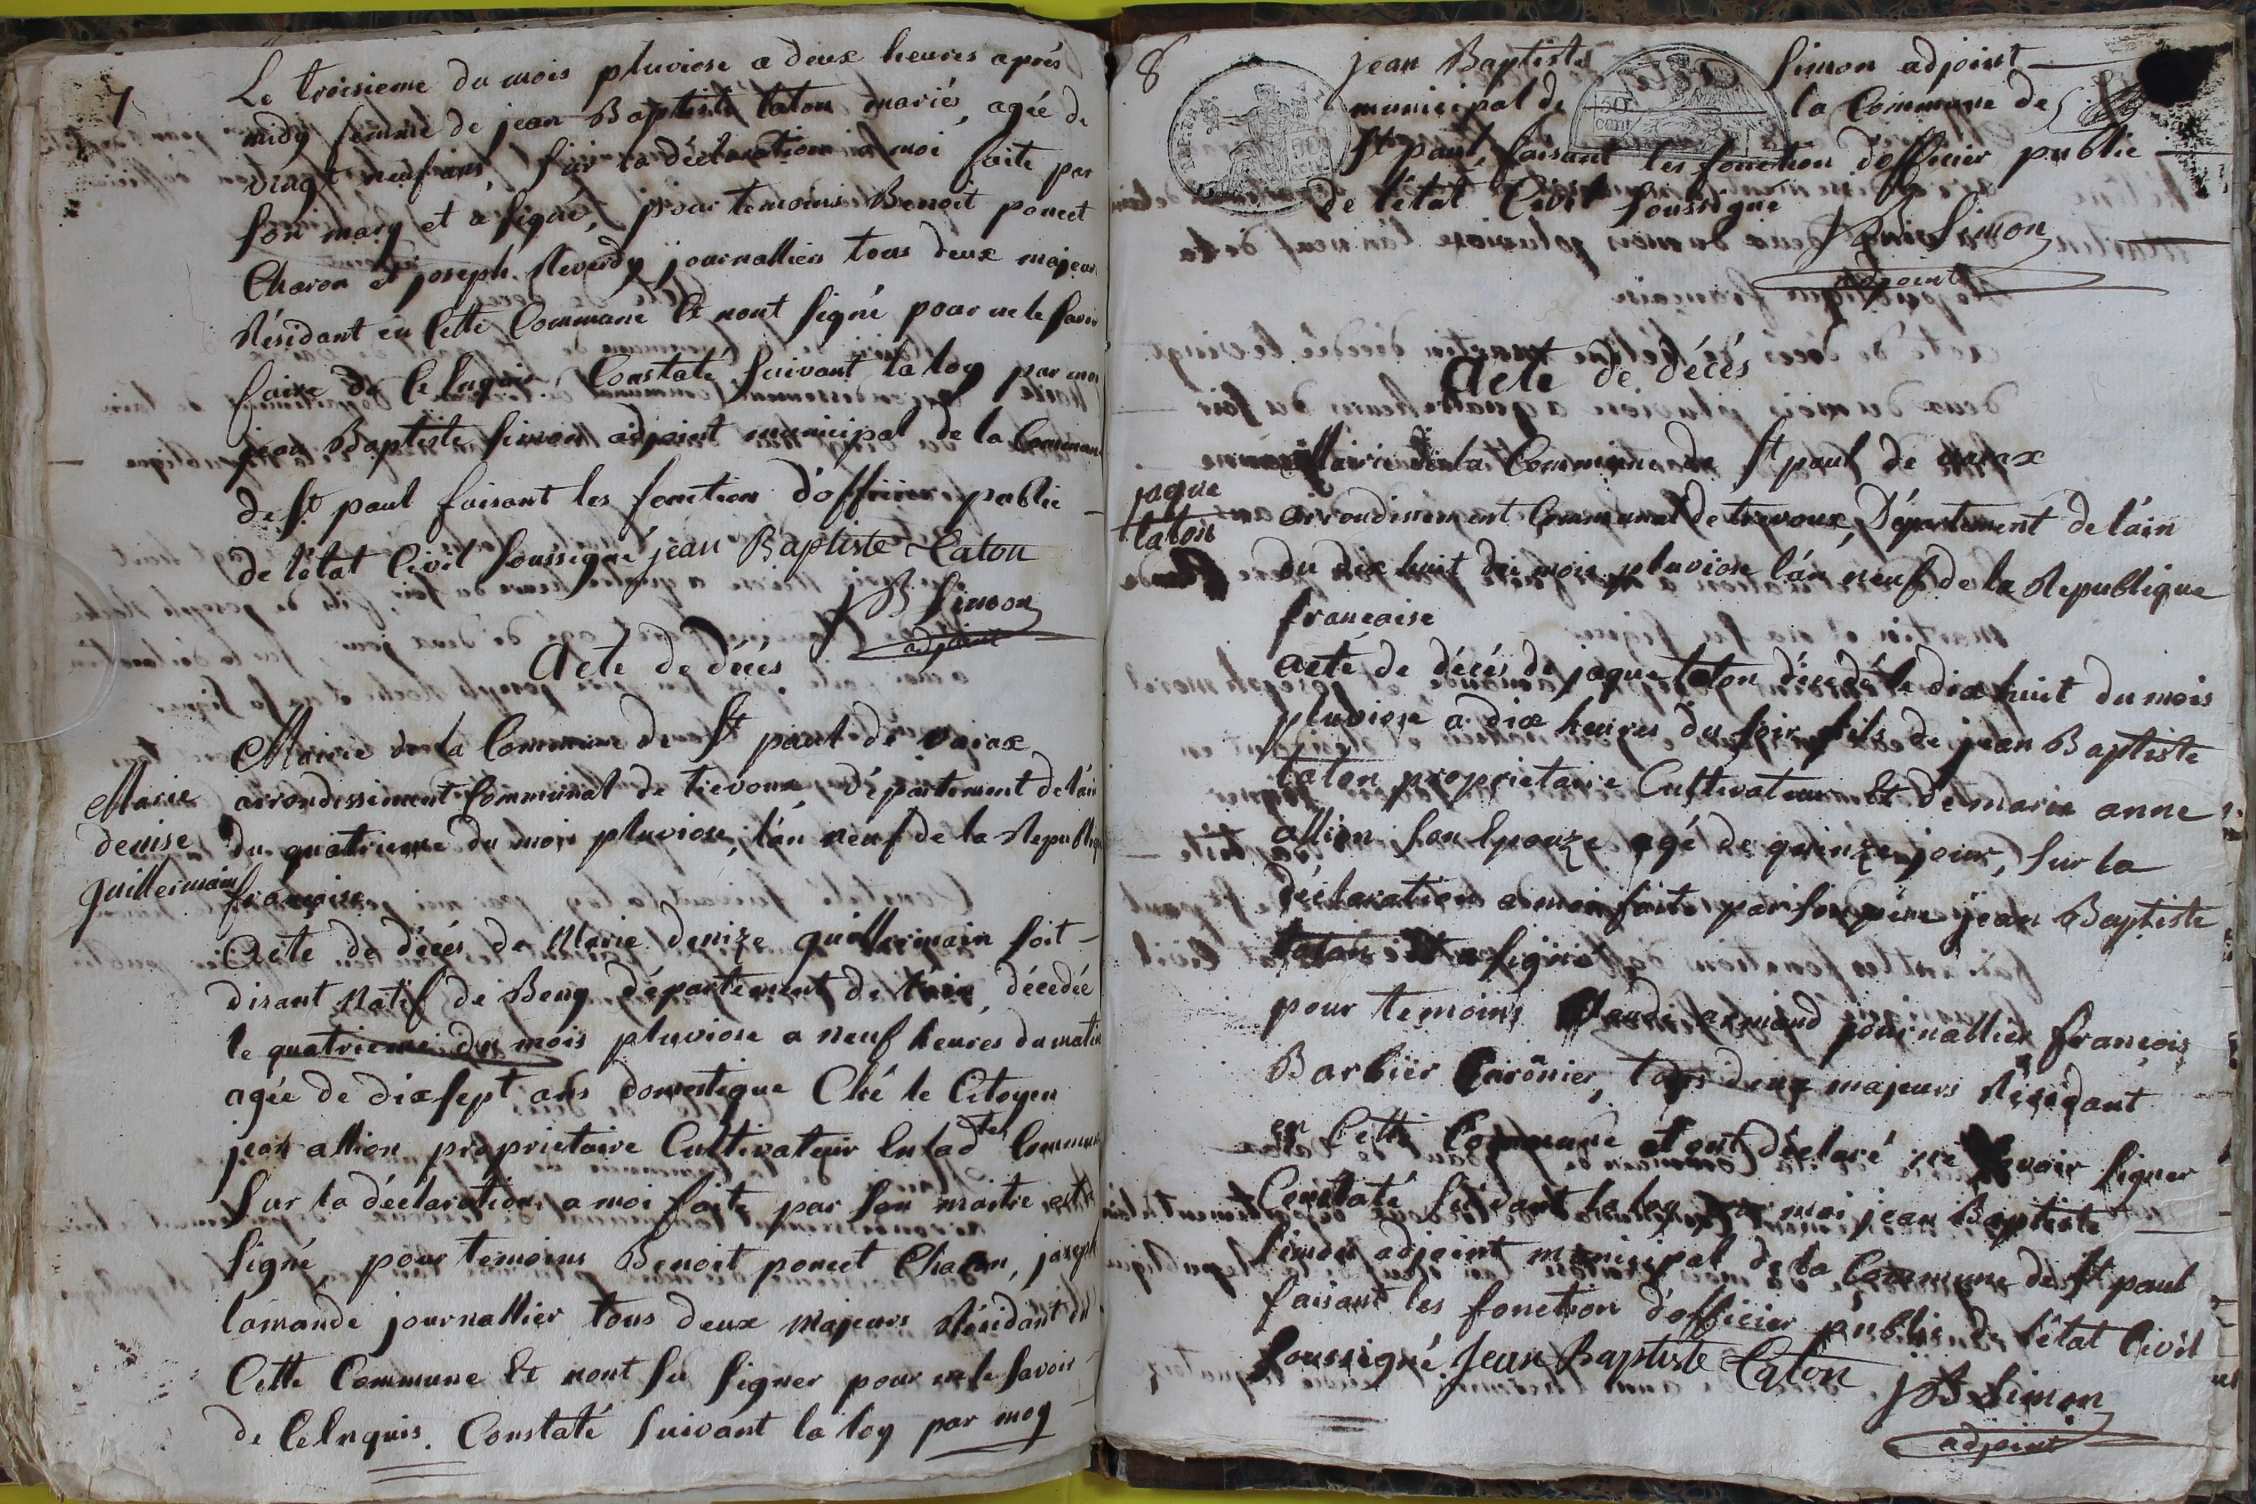 7
Le troisieme du mois pluviose a deux heures après
midy femme de jean Baptiste taton mariés, agée de
vingt neuf ans sur la déclaration a moi faite par
son mary et a signé, pour temoins Benoit poncet
Charon et joseph Reverdy journalliers tous deux majeurs
Résidant en Cette Commune Et nont signé pour ne le savoir
faire de Ce Enquis Constaté suivant la loy par moi
jean Baptiste Simon adjoint municipal de la Commune
de St paul faisant les fonction d'officier public
de l'état Civil soussigné jean Baptiste Taton
JB Simon
adjoint
Acte de décès
Mairie de la Commune de St paul de varax
Marie denise guillermain
arrondissement Communal de trevoux département de l'ain
du quatrieme du mois pluviose, l'an neuf de la Republique
française
Acte de décés de Marie denize guillermain soit
disant Natif de Beny département de l'ain, décedée
le quatrieme du mois pluviose a neuf heures du matin
agée de dix sept ans domestique Ché le Citoyen
jean allion proprietaire Cultivateur En lad te Commune
Sur la déclaration a moi faite par son maitre
signé, pour temoins Benoit poncet Charon, joseph
lamande journallier tous deux majeurs Résidant en
Cette Commune Et nont su signer pour ne le savoir
de Ce Enquis. Constaté suivant la loy par moy
8
jean Baptiste Simon adjoint
municipal de la Commune de
St paul, faisant les fonction d'officier public
de l'état Civil soussigné
JB Simon
adjoint
Acte de décès
Mairie de la Commune de St paul de varax
jaque taton
arrondissement Communal de trevoux, Département de l'ain
du dix huit du mois pluviose l'an neuf de la Republique
française
acte de décés de jaque taton décedé le dix huit du mois
pluviose a dix heures du soir fils de jean Baptiste
taton proprietaire Cultivateur Et de marie anne
allion son Epouze agé de quinze jour, sur la
déclaration a moi faite par son pere jean Baptiste
taton Et a signé
pour temoins Claude armand journallier françois
Barbier, tous deux majeurs Résidant
en Cette Commune et ont déclaré ne savoir signer
Constaté suivant la loy par moi jean Baptiste
Simon adjoint municipal de la Commune de St paul
faisant les fonction d'officier public de l'état Civil
soussigné Jean Baptiste Taton
JB Simon
adjoint